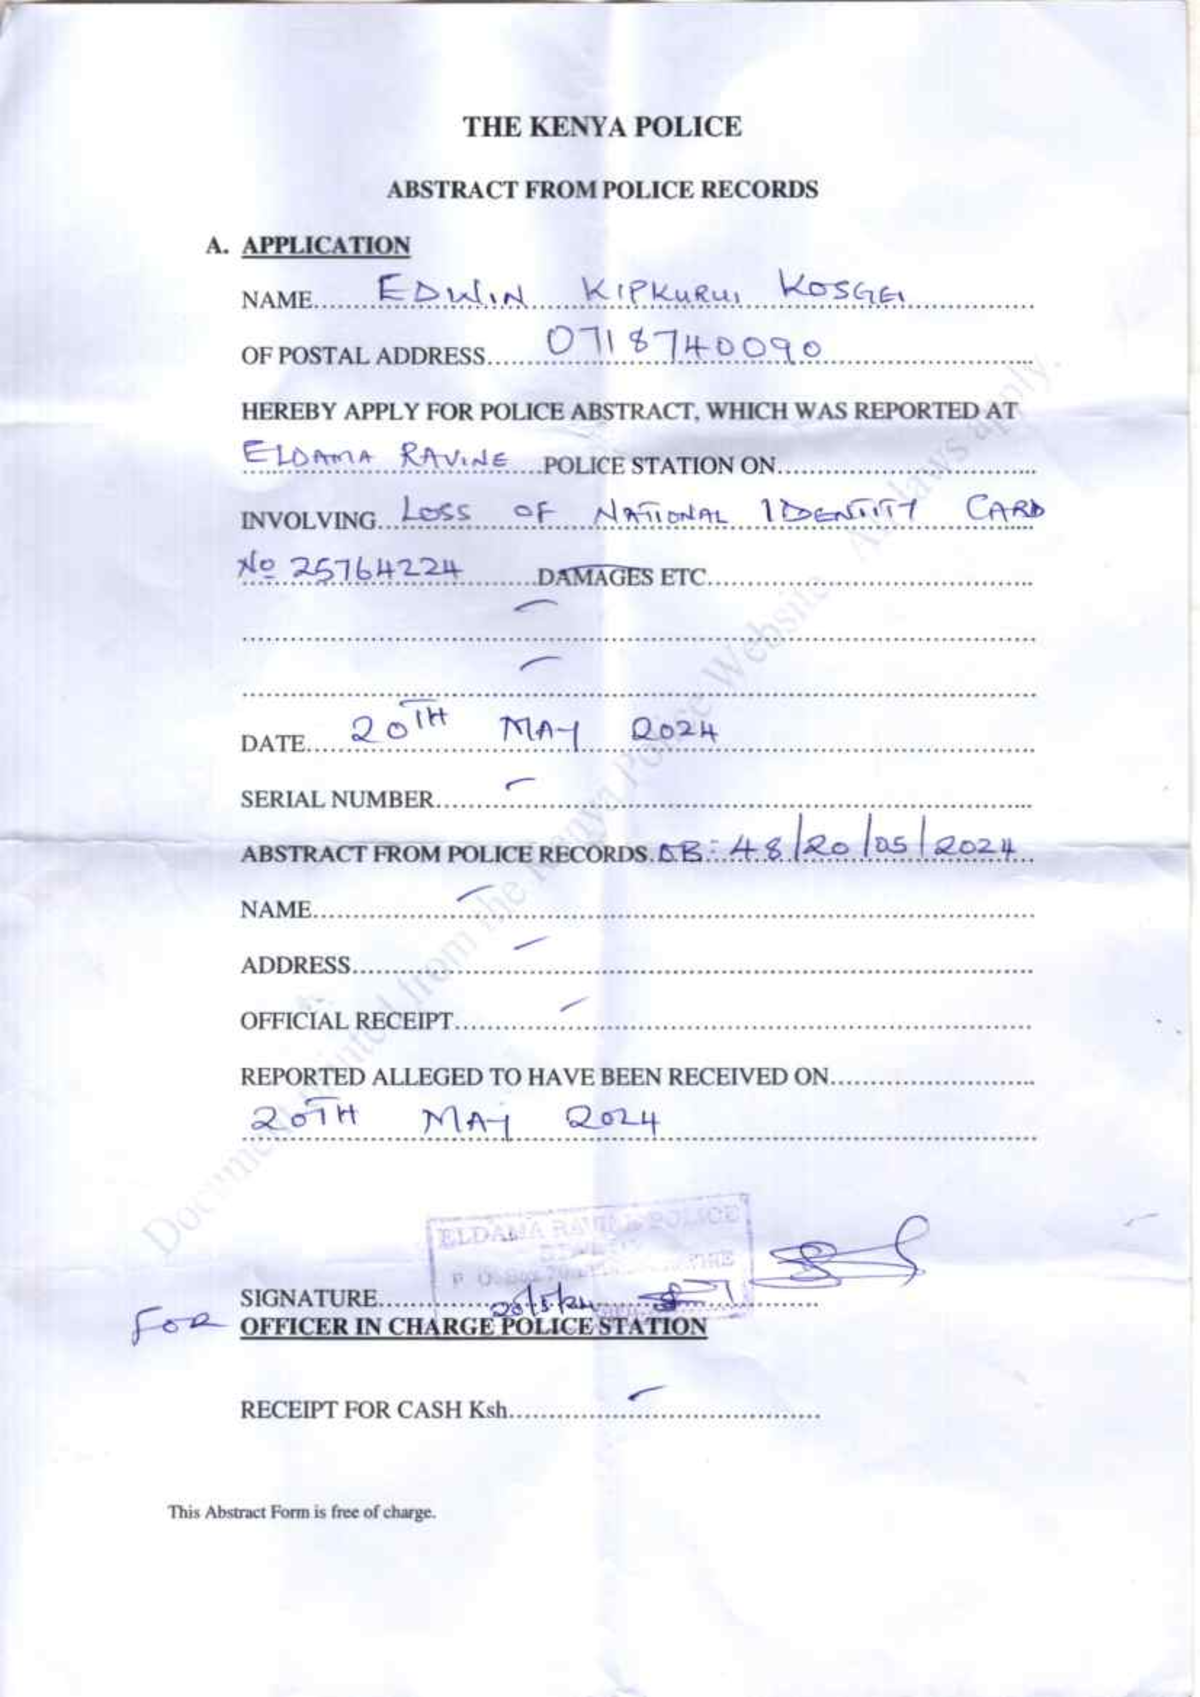 THE KENYA POLICE
ABSTRACT FROM POLICE RECORDS
A. APPLICATION
NAME EDWIN KIPKURUI KOSGEI
OF POSTAL ADDRESS 0718740090
HEREBY APPLY FOR POLICE ABSTRACT, WHICH WAS REPORTED AT
ELDAMA RAVINE POLICE STATION ON
INVOLVING LOSS OF NATIONAL IDENTITY CARD
No 25764224 DAMAGES ETC
DATE 20TH MAY 2024
SERIAL NUMBER
ABSTRACT FROM POLICE RECORDS OB: 48/20/05/2024
NAME
ADDRESS
OFFICIAL RECEIPT
REPORTED ALLEGED TO HAVE BEEN RECEIVED ON
20TH MAY 2024
ELDAMA RAVINE POLICE
P. O. Box
SIGNATURE 20/5/24
FOR OFFICER IN CHARGE POLICE STATION
RECEIPT FOR CASH Ksh
This Abstract Form is free of charge.
Document printed from the Kenya Police Website. All laws apply.